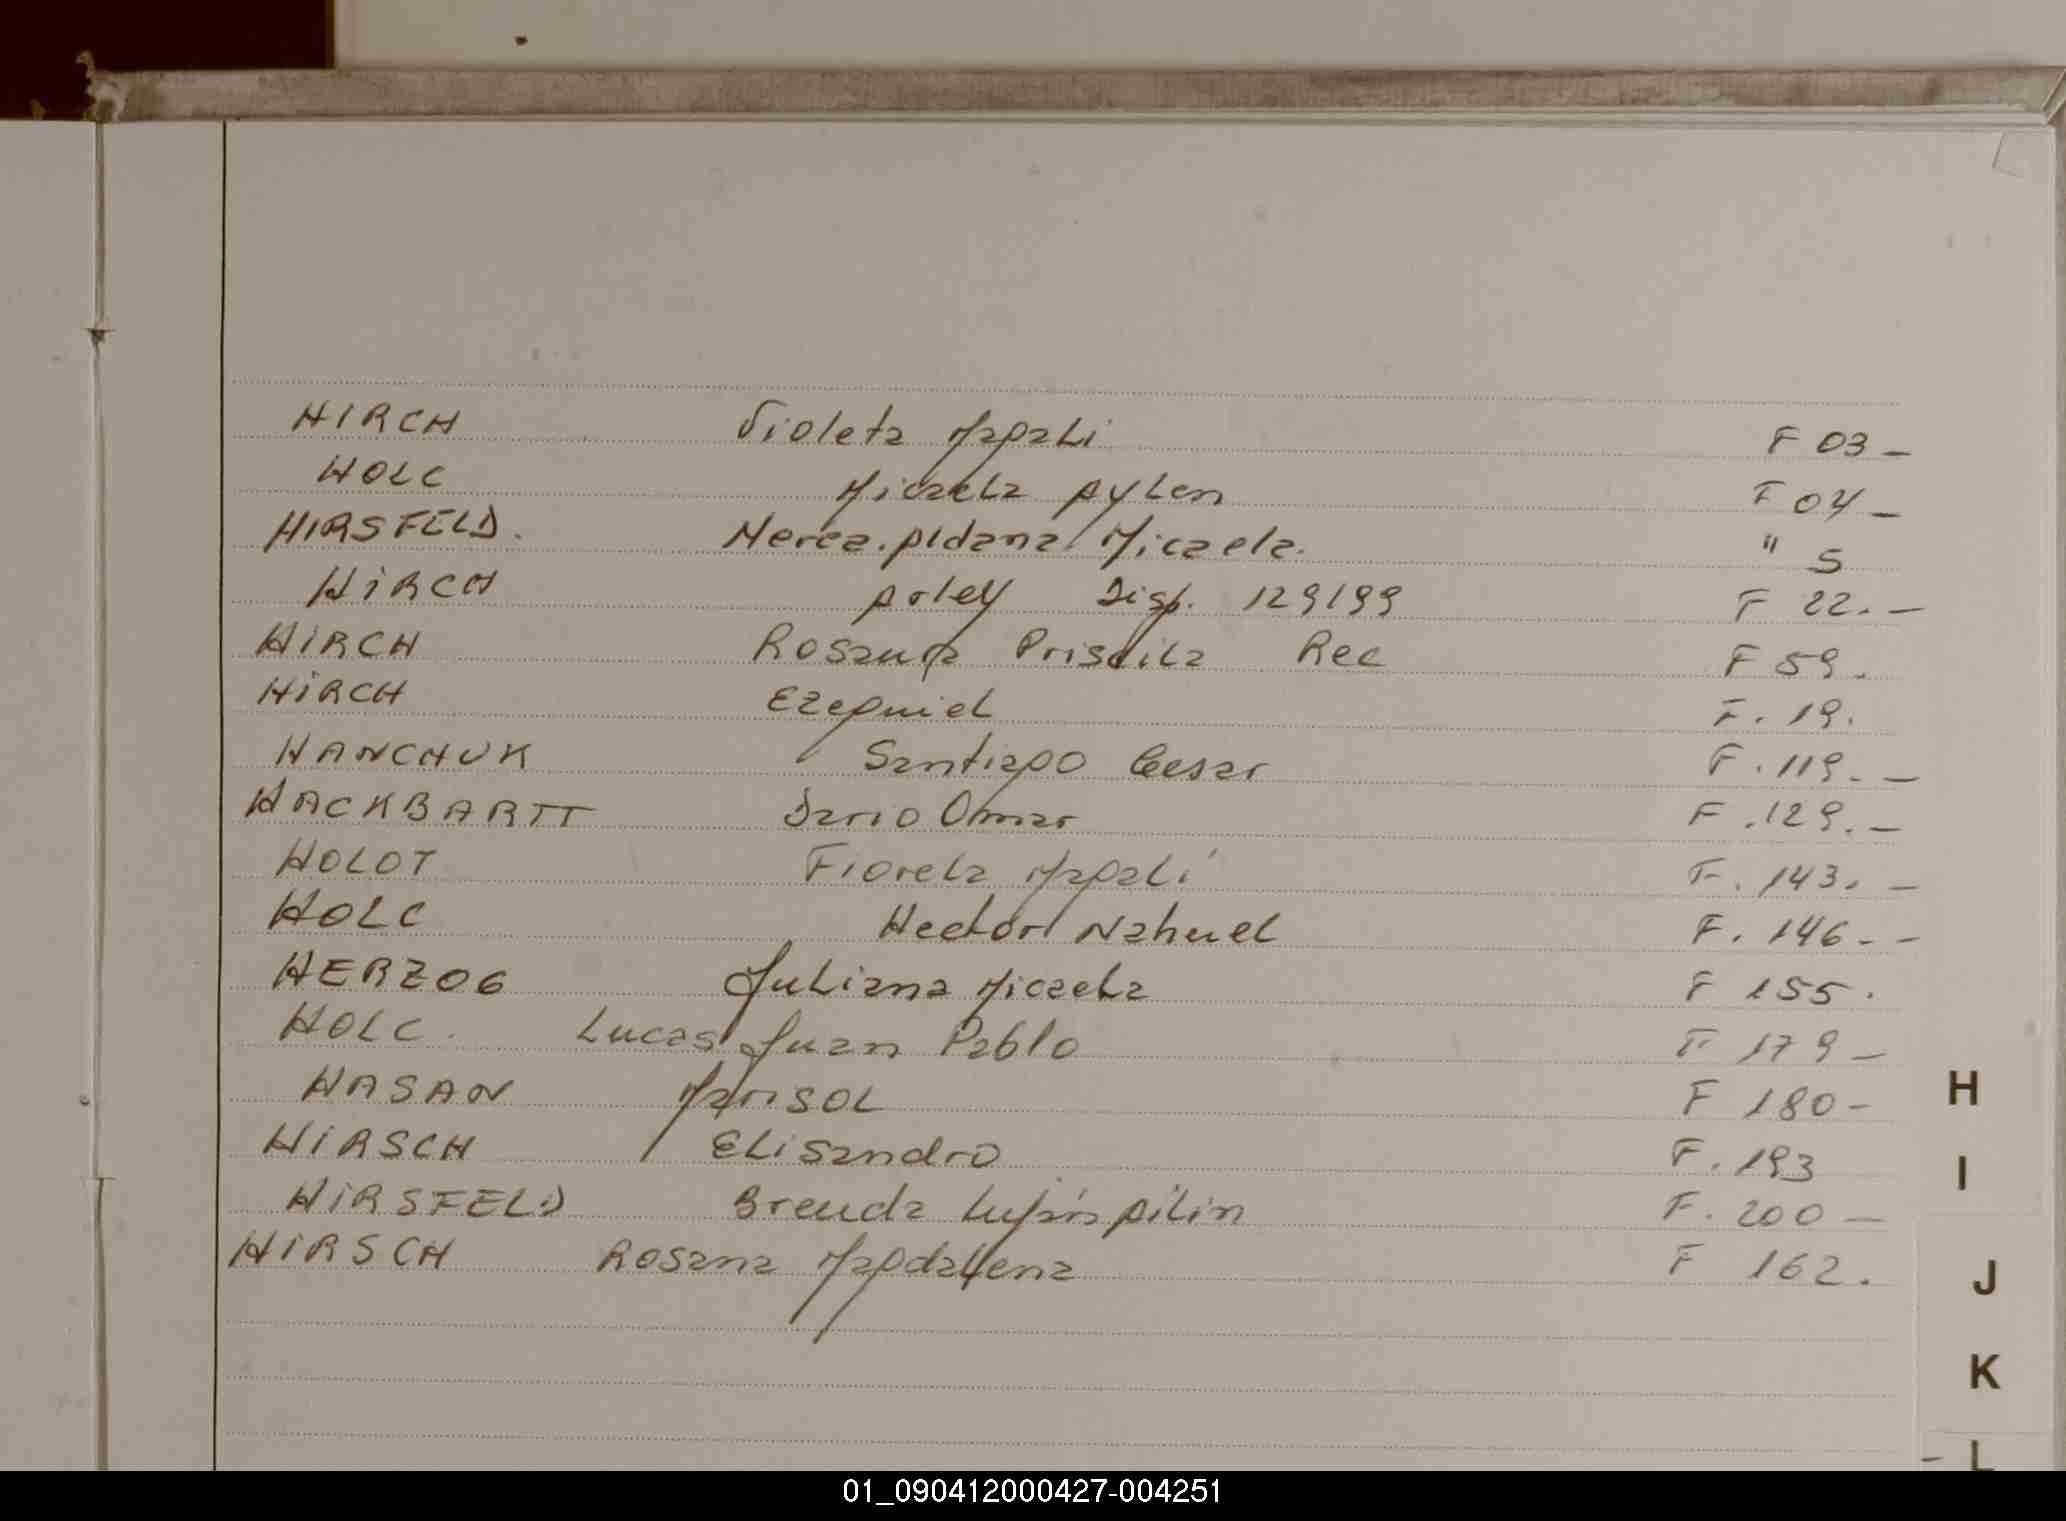 HIRCH Violeta Magali F 03 -
HOLC Micaela Aylen F 04 -
HIRSFELD. Nerea. Aldana Micaela. " 5
HIRCH Arley Disp. 129/99 F 22. -
HIRCH Rosaura Priscila Rec F 59.
HIRCH Ezequiel F. 19.
HANCHUK Santiago Cesar F. 119. -
HACKBARTT Dario Omar F. 129. -
HOLOT Fiorela Magalí F. 143. -
HOLC Hector Nahuel F. 146 - -
HERZOG Juliana Micaela F 155.
HOLC. Lucas Juan Pablo F 179 -
HASAN Marisol F 180 -
HIRSCH Elisandro F. 193
HIRSFELD Brenda Luján F. 200 -
HIRSCH Rosana Magdalena F 162.
H
I
J
K
L
01_090412000427-004251